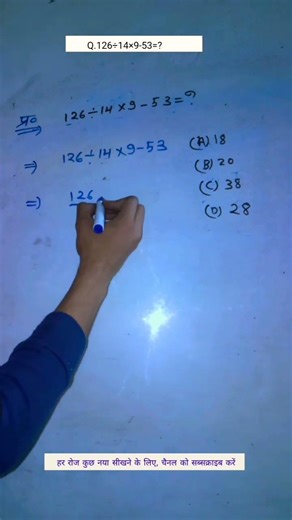 Q.126÷14×9-53=?
प्र० 126÷14×9-53=?
⇒ 126÷14×9-53
(A) 18
(B) 20
⇒ 126
(C) 38
(D) 28
हर रोज कुछ नया सीखने के लिए, चैनल को सब्सक्राइब करें